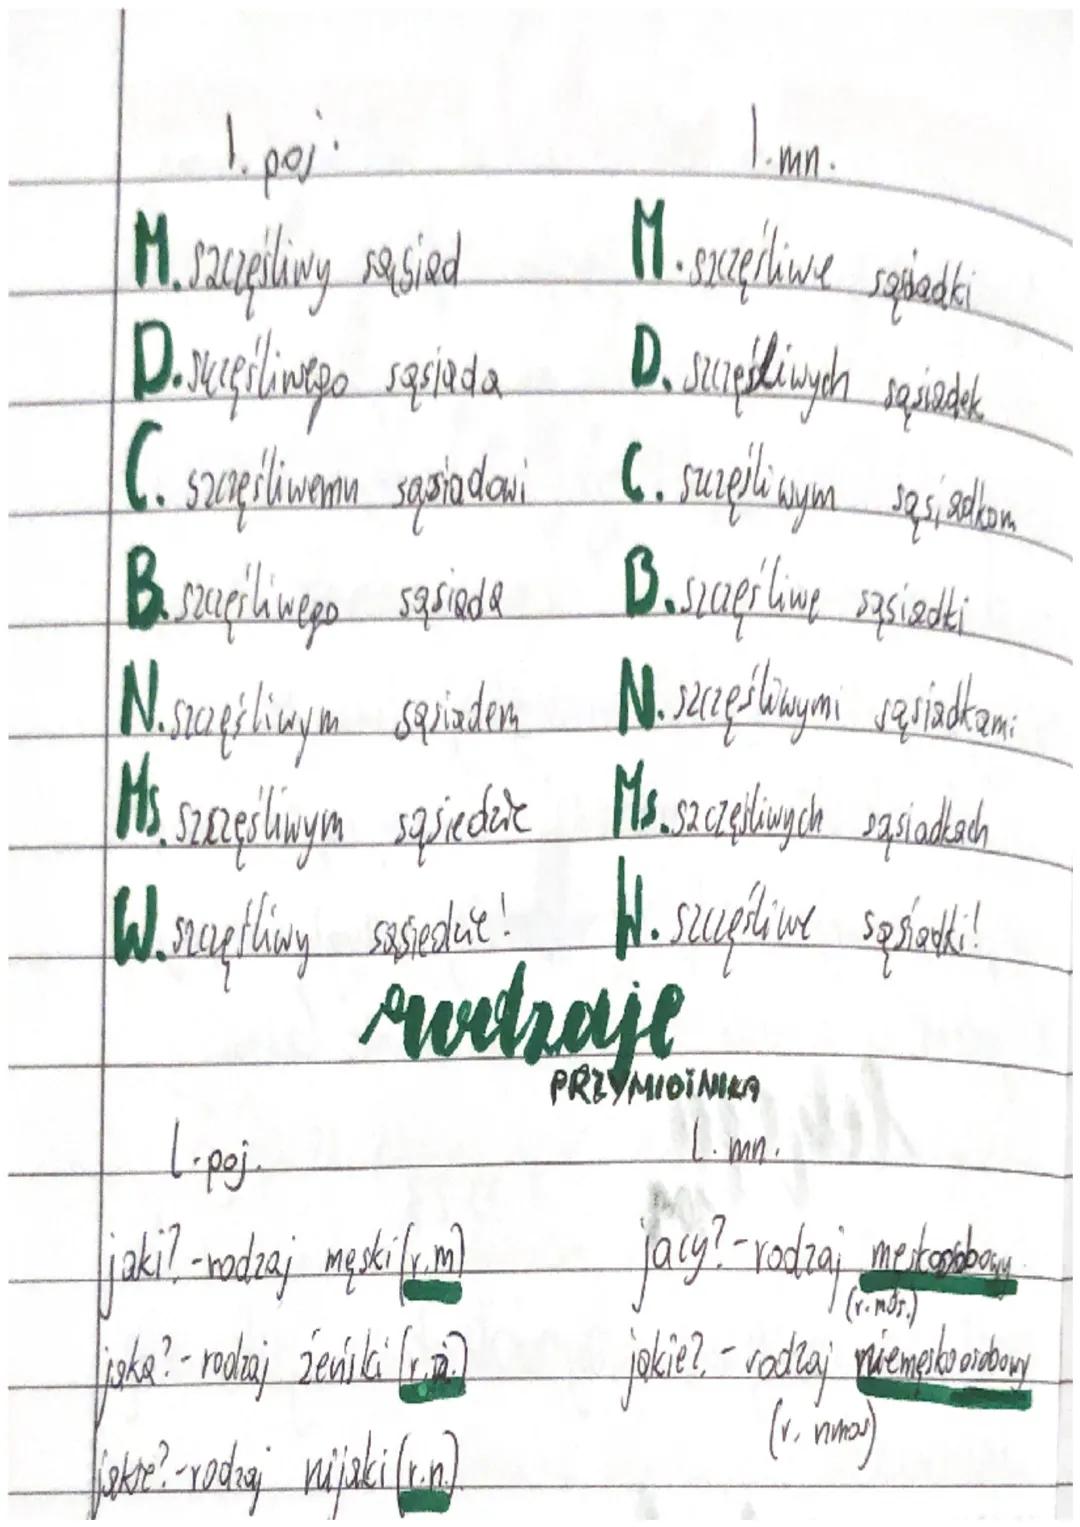 l. poj. l. mn.
M. szczęśliwy sąsiad M. szczęśliwe sąsiadki
D. szczęśliwego sąsiada D. szczęśliwych sąsiadek
C. szczęśliwemu sąsiadowi C. szczęśliwym sąsiadkom
B. szczęśliwego sąsiada B. szczęśliwe sąsiedki
N. szczęśliwym sąsiadem N. szczęśliwymi sąsiadkami
Ms. szczęśliwym sąsiedzie Ms. szczęśliwych sąsiadkach
W. szczęśliwy sąsiedzie! W. szczęśliwe sąsiadki!
rodzaje
PRZYMIOTNIKA
l. poj. l. mn.
jaki? - rodzaj męski (r.m) jacy? - rodzaj męskoosobowy
(r. mos.)
jaka? - rodzaj żeński (r.ż.) jakie? - rodzaj niemęskoosobowy
(r. nmos)
jakie? - rodzaj nijaki (r.n.)